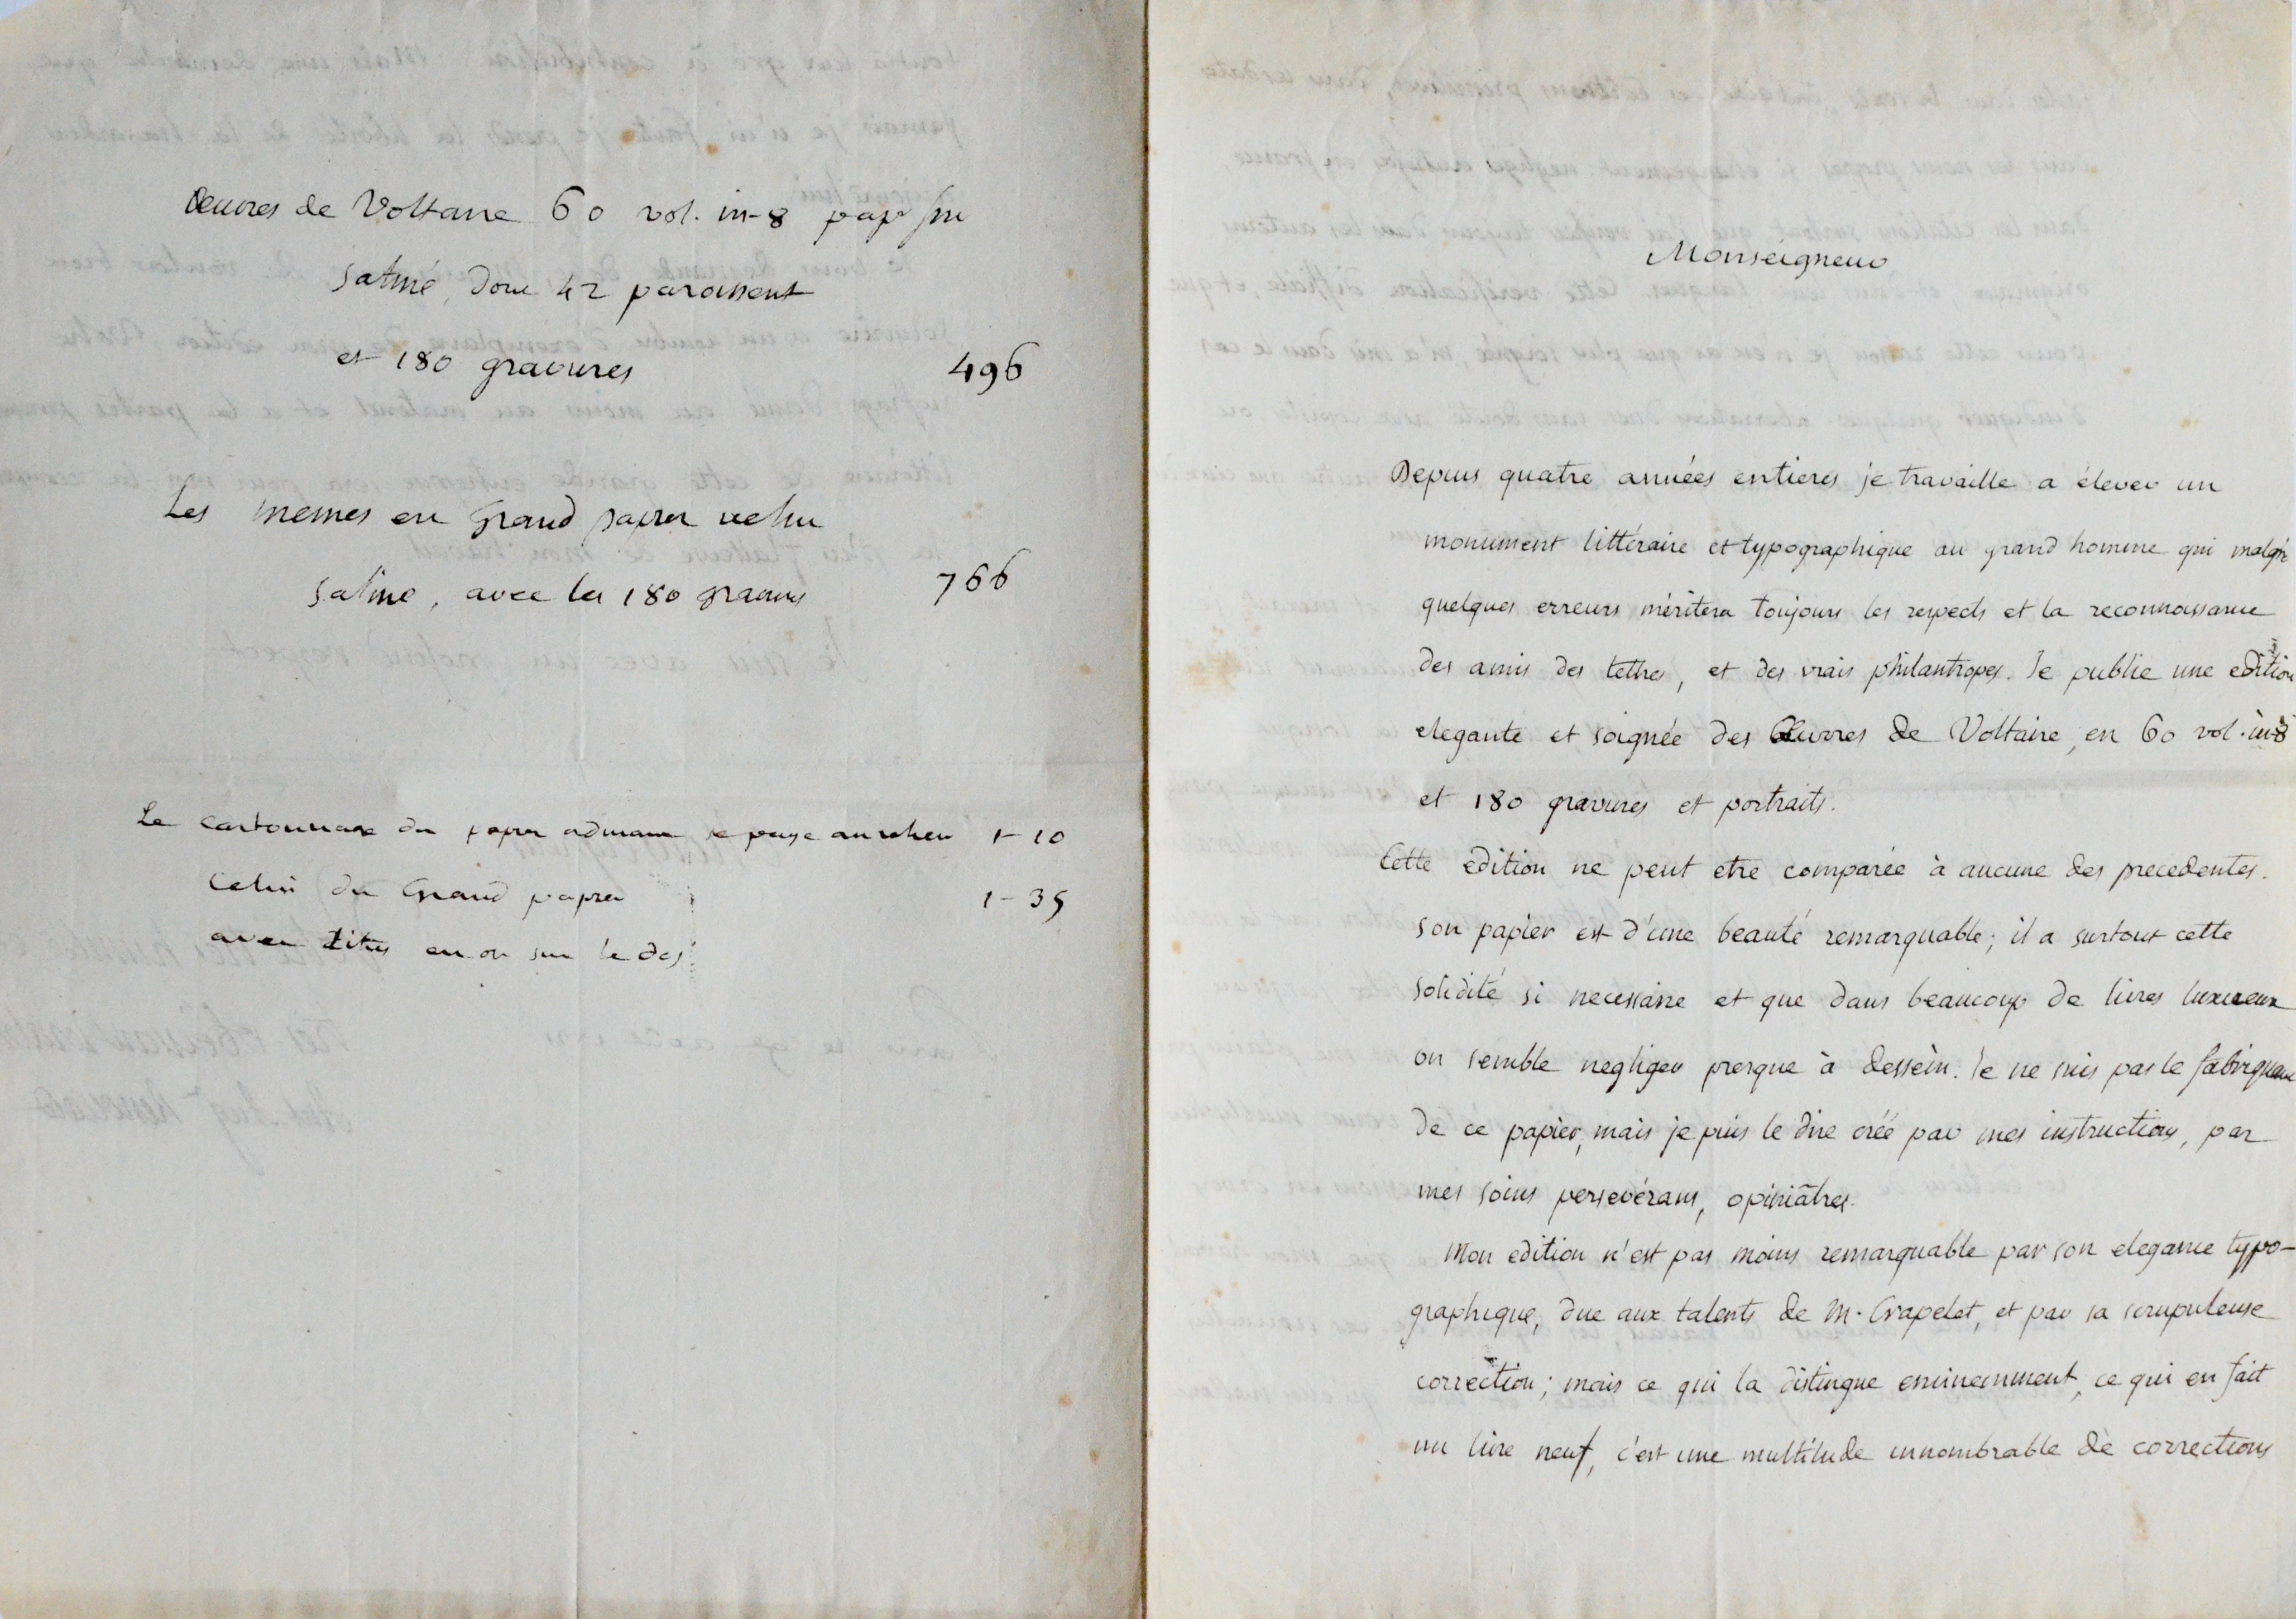 Œuvres de Voltaire 60 vol. in-8 pap fin
satiné, dont 42 paroissent
et 180 gravures 496
Les memes en Grand papier velin
satiné, avec les 180 gravures 766
Le cartonnage du papier se paye 1-10
Celui du Grand papier 1-35
avec titres en or sur le dos
Monseigneur
Depuis quatre années entieres je travaille a élever un
monument littéraire et typographique au grand homme qui malgré
quelques erreurs méritera toujours les respects et la reconnoissance
des amis des lettres, et des vrais philantropes. Je publie une edition
elegante et soignée des Œuvres de Voltaire, en 60 vol. in-8
et 180 gravures et portraits.
Cette édition ne peut etre comparée à aucune des precedentes.
son papier est d'une beauté remarquable; il a surtout cette
solidité si necessaire et que dans beaucoup de livres luxueux
on semble negliger presque à dessein. Je ne suis pas le fabriquant
de ce papier, mais je puis le dire créé par mes instructions, par
mes soins persevérans, opiniâtres.
Mon edition n'est pas moins remarquable par son elegance typo-
graphique, due aux talents de M. Crapelet, et par sa scrupuleuse
correction; mais ce qui la distingue eminemment, ce qui en fait
un livre neuf, c'est une multitude innombrable de corrections